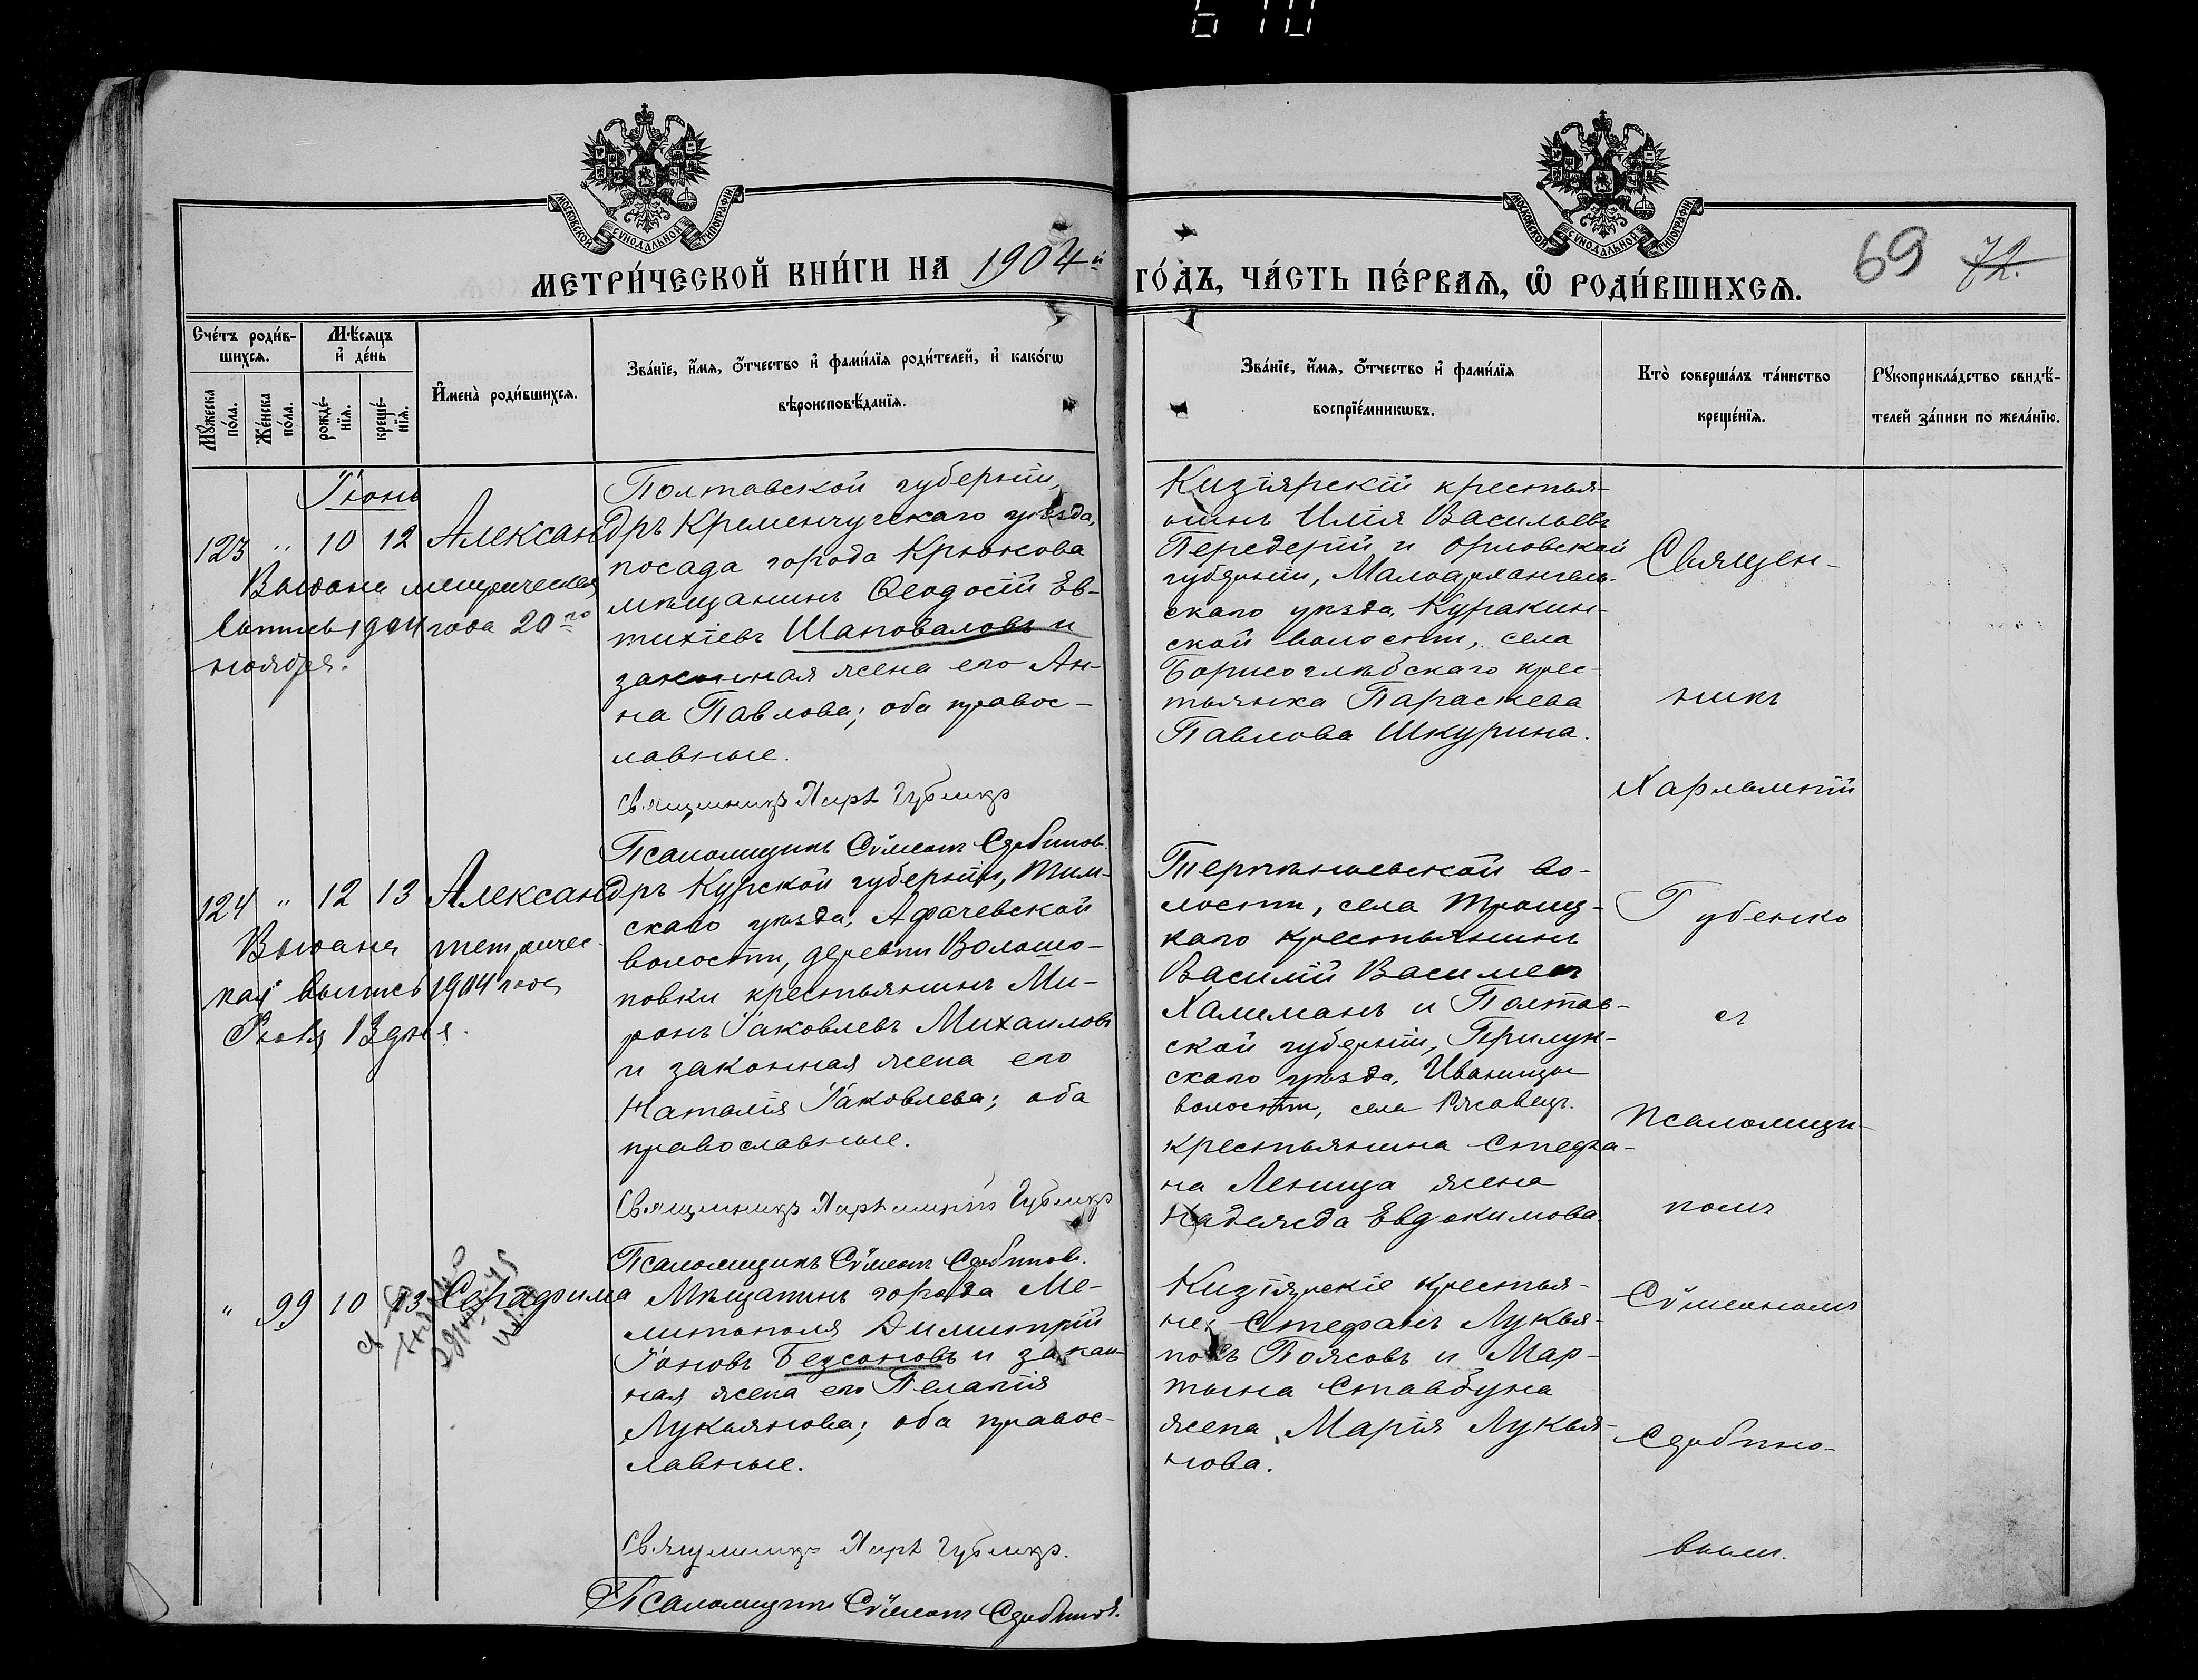 610
МОСКОВСКОЙ СУНОДАЛЬНОЙ ТИПОГРАФІИ
МОСКОВСКОЙ СУНОДАЛЬНОЙ ТИПОГРАФІИ
МЕТРИ́ЧЕСКОЙ КНИ́ГИ НА 1904й ГО́ДЪ, ЧА́СТЬ ПЕ́РВАѦ, Ѡ҆ РОДИ́ВШИХСѦ.
69 72.
Сче́тъ роди́в-
шихсѧ.
Мꙋ́жеска по́ла.
Же́нска по́ла.
Мѣ́сѧцъ
и҆ де́нь
рожде́-
нїѧ.
креще́-
нїѧ.
И҆мена̀ роди́вшихсѧ.
Зва́нїе, и҆́мѧ, ѻ҆́тчество и҆ фами́лїѧ роди́телей, и҆ како́гѡ
вѣроисповѣ́данїѧ.
Зва́нїе, и҆́мѧ, ѻ҆́тчество и҆ фами́лїѧ
воспрїе́мникѡвъ.
Кто̀ соверша́лъ та́инство
креще́нїѧ.
Рꙋкоприкла́дство свидѣ́-
телей за́писи по жела́нїю.
Іюнь
123 " 10 12 Александръ
Выдана метрическая
выпись 1904 года 20го
ноября.
Полтавской губерніи,
Кременчугскаго уѣзда,
посада города Крюкова
мѣщанинъ Ѳеодосій Ев-
тихіевъ Шаповаловъ и
законная жена его Ан-
на Павлова; оба правос-
лавные.
Священникъ Харл Губенко
Псаломщикъ Сѵмеонъ
Кизіярскій крестья-
нинъ Илія Васильевъ
Передерій и Орловской
губерніи, Малоархангель-
скаго уѣзда, Куракин-
ской волости, села
Борисоглѣбскаго крес-
тьянка Параскева
Павлова Шкурина.
124 " 12 13 Александръ
Выдана метричес-
кая выпись 1904 года
13 дня.
Курской губерніи, Тим-
скаго уѣзда, Афачевской
волости, деревни Волоко-
повки крестьянинъ Ми-
ронъ Іаковлевъ Михаиловъ
и законная жена его
Наталія Іаковлева; оба
православные.
Священникъ Харлампій Губенко
Псаломщикъ Сѵмеонъ
Терпѣньевской во-
лости, села Троиц-
каго крестьянинъ
Василій Василіевъ
Халиманъ и Полтав-
ской губерніи, Прилук-
скаго уѣзда, Иваницкой
волости, села
крестьянина Стефа-
на жена
Надежда Евдокимова.
" 99 10 13 Серафима
Мѣщанинъ города Ме-
литополя Димитрій
Іоновъ Безсоновъ и закон-
ная жена его Пелагія
Лукьянова; оба правос-
лавные.
Священникъ Харл Губенко.
Псаломщикъ Сѵмеонъ
Кизіярскіе крестья-
не: Стефанъ Лукья-
новъ Поясовъ и Мар-
тына Ставбуна
жена Марія Лукья-
нова.
Священ-
никъ
Харлампій
Губенко
съ
псаломщи-
комъ
Сѵмеономъ